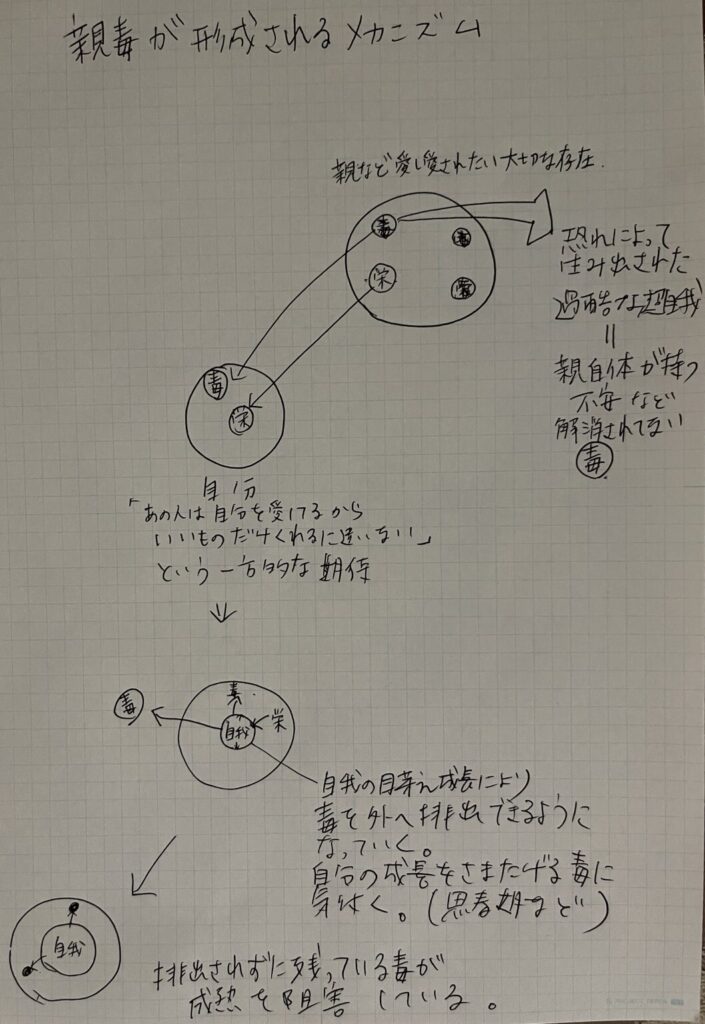 親毒が形成されるメカニズム
親など愛し愛されたい大切な存在.
毒
毒
栄
毒
恐れによって
生み出された
過酷な超自我
||
親自体が持つ
不安など
解消されてない
毒
毒
栄
自分
「あの人は自分を愛してるから
いいものだけくれるに違いない」
という一方的な期待
毒
毒
自我
栄
自我の目芽え成長により
毒を外へ排出できるように
なっていく。
自分の成長をさまたげる毒に
気付く。(思春期など)
自我
排出されずに残っている毒が
成熟を阻害している。